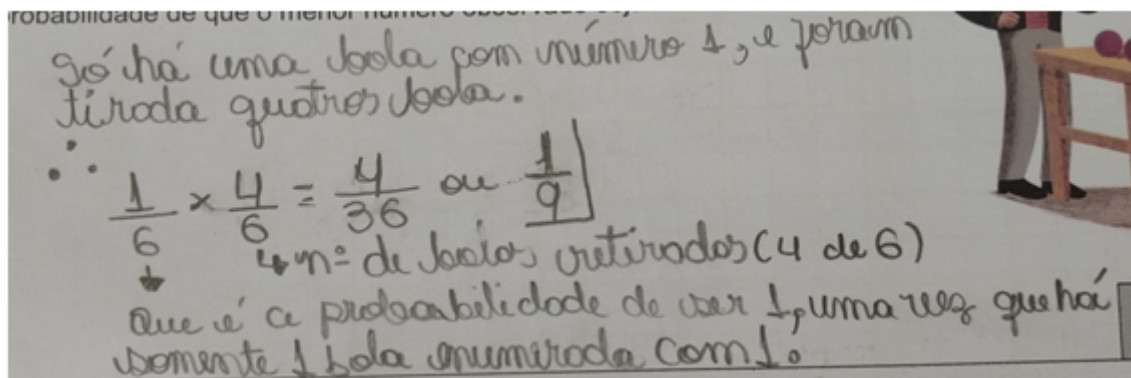 robabilidade de que o menor número observado
Só há uma bola com número 1, e foram
tirada quatros bola.
∴ 1/6 × 4/6 = 4/36 ou 1/9
nº de bolas retirados (4 de 6)
Que é a probabilidade de ser 1, uma vez que há
somente 1 bola enumerada com 1.